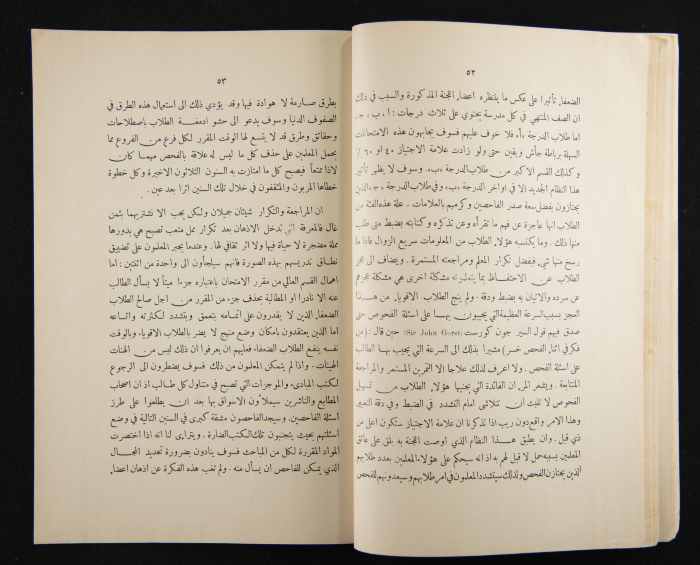 ٥٢
الضعفاء تأثيرا على عكس ما ينتظره اعضاء اللجنة المذكورة والسبب في ذلك
ان الصف المنتهي في كل مدرسة يحتوي على ثلاث درجات : ا ، ب ، ج .
اما طلاب الدرجة «أ» فلا خوف عليهم فسوف يجابهون هذه الامتحانات
السهلة برباطة جأش ويقين حتى ولو زادت علامة الاجتياز ٤٠ او ٦٠ ٪
وكذلك القسم الاكبر من طلاب الدرجة «ب». وسوف لا يظهر تأثير
هذا النظام الجديد الا في اواخر الدرجة «ب» وفي طلاب الدرجة «ج» الذين
يجتازون بفضل سعة صدر الفاحصين وكرمهم بالعلامات . علة هذه الفئة من
الطلاب انها عاجزة عن فهم ما تقرأه وعن تذكره وكتابته بضبط متى طلب
منها ذلك . وما يكتسبه هؤلاء الطلاب من المعلومات سريع الزوال فاذا ما
رسخ منها شيء فبفضل تكرار المعلم ومراجعته المستمرة . ويضاف الى عجز
الطلاب عن الاحتفاظ بما يتعلمونه مشكلة اخرى هي مشكلة عجزهم
عن سرده والاتيان به بضبط ودقة . ولم ينج الطلاب الاقوياء من هــذا
العجز بسبب السرعة العظيمة التي يجيبون بهــا على اسئلة الفحوص حتى
صدق فيهم قول السير جون كورست (Sir John Gorst) حين قال : (من
فكر في اثناء الفحص خسر) مشيرا بذلك الى السرعة التي يجيب بهــا الطالب
على اسئلة الفحص . ولا اعرف لذلك علاجا الا التمرين المستمر والمراجعة
المتتابعة . ويشعر المرء ان الفائدة التي يجنيها هؤلاء الطلاب من تسهيل
الفحوص لا تلبث ان تتلاشى امام التشدد في الضبط وفي دقة التعبير
وهذا الامر واقع دون ريب اذا تذكرنا ان علامة الاجتياز ستكون اعلى من
ذي قبل . وان يطبق هــذا النظام الذي اوصت اللجنة به يلق على عاتق
المعلمين بسببه حمل لا قبل لهم به اذ انه سيحكم على هؤلاء المعلمين بعدد طلابهم
الذين يجتازن الفحص ولذلك سيتشدد المعلمون في امر طلابهم وسيعدونهم للفحص
٥٣
بطرق صارمة لا هوادة فيها وقد يؤدي ذلك الى استعمال هذه الطرق في
الصفوف الدنيا وسوف يدعو الى حشو ادمغة الطلاب باصطلاحات
وحقائق وطرق قد لا يتسع لها الوقت المقرر لكل فرع من الفروع مما
يحمل المعلمين على حذف كل ما ليس له علاقة بالفحص مهمــا كان
لاذا ممتعاً فيصبح كل ما امتازت به السنون الثلاثون الاخيرة وكل خطوة
خطاها المربون والمثقفون في خلال تلك السنين اثرا بعد عين .
ان المراجعة والتكرار شيئان جميلان ولكن يجب الا نشتريهما بثمن
غال فالمعرفة التي تدخل الاذهان بعد تكرار ممل متعب تصبح هي بدورها
مملة مضجرة لا حياة فيها ولا اثر ثقافي لها . وعندما يجبر المعلمون على تضييق
نطــاق تدريسهم بهذه الصورة فانهم سيلجأون الى واحدة من اثنتين : اما
اهمال القسم العالي من مقرر الامتحان باعتباره جزءا ميتاً لا يسأل الطالب
عنه الا نادرا او المطالبة بحذف جزء من المقرر من اجل صالح الطلاب
الضعفاء الذين لا يقدرون على اتمامه بتعمق وبتشدد لكثرته واتساعه
اما الذين يعتقدون بامكان وضع منهج لا يضر بالطلاب الاقوياء وبالوقت
نفسه ينفع الطلاب الضعفاء فعليهم ان يعرفوا ان ذلك ليس من الهنات
الهينات . واذا لم يتمكن المعلمون من ذلك فسوف يضطرون الى الرجوع
لكتب المبادىء والموجزات التي تصبح في متناول كل طــالب اذ ان اصحاب
المطابع والناشرين سيملأون الاسواق بها بعد ان يطلعوا على طرز
اسئلة الفاحصين. وسيجد الفاحصون مشقة كبرى في السنين التالية في وضع
اسئلتهم بحيث يتجنبون تلك الكتب الضارة . ويتراءى لنا انه اذا اختصرت
المواد المقررة لكل من المباحث فسوف ينادون بضرورة تحديد المجــال
الذي يمكن للفاحص ان يسأل منه . ولم تغب هذه الفكرة عن اذهان اعضاء